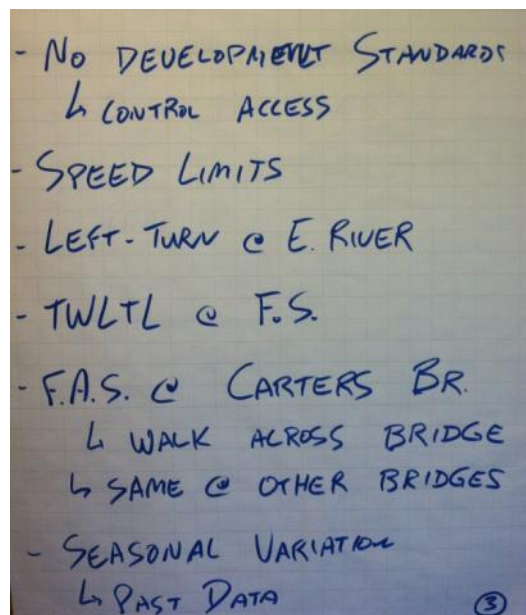 - No DEVELOPMENT STANDARDS
↳ CONTROL ACCESS
- SPEED LIMITS
- LEFT-TURN @ E. RIVER
- TWLTL @ F.S.
- F.A.S. @ CARTERS BR.
↳ WALK ACROSS BRIDGE
↳ SAME @ OTHER BRIDGES
- SEASONAL VARIATION
↳ PAST DATA
③